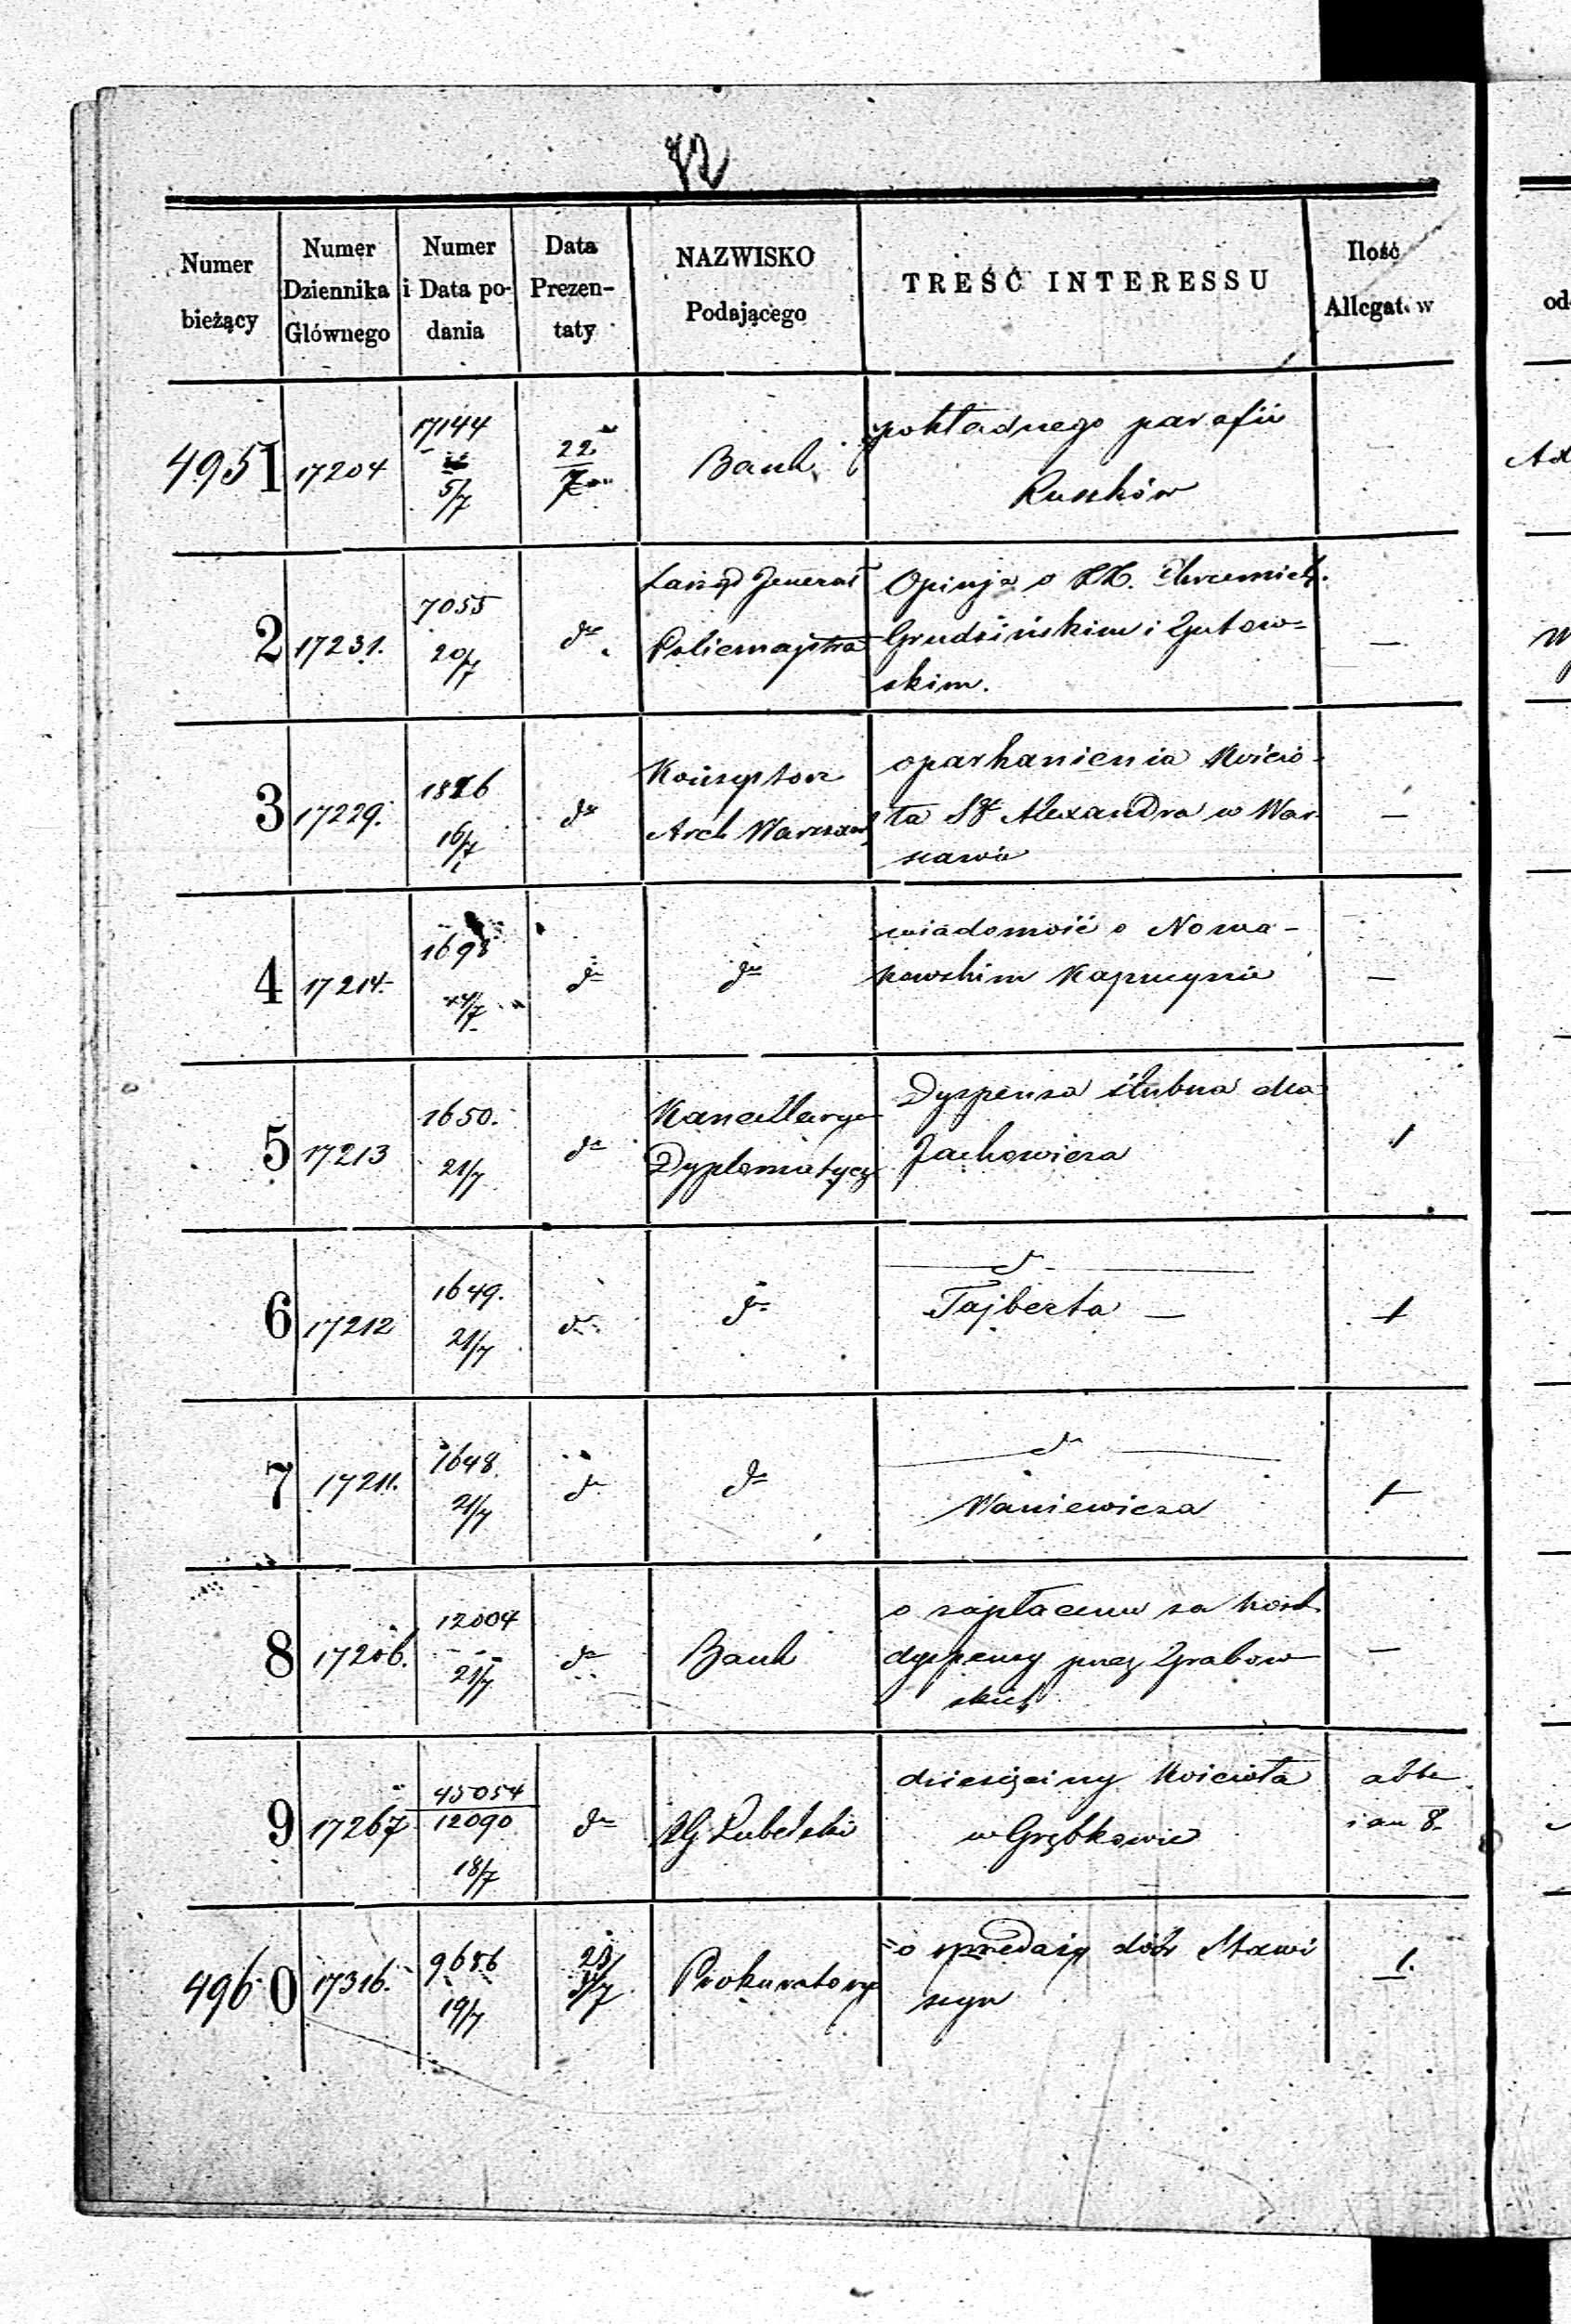 72
Numer bieżący
Numer Dziennika Głównego
Numer i Data podania
Data Prezentaty
NAZWISKO Podającego
TREŚĆ INTERESSU
Ilość Allegatów
4951 17204 17144 5/7 22/7 Bank pokładnego parafii
Ruszków
2 17231. 7055 20/7 do Zarząd Jenerał Policmajstra Opinja o XX. —
Grudzińskim i Gutow=
skim.
3 17229. 1826 16/7 do Konsystorz Arch Warszaw oparkanienia Kościo-
ła Sgo Alexandra w War-
szawie
4 17214. 1698 /7 do do wiadomość o Nowa-
kowskim Kapucynie —
5 17213 1650. 21/7 do Kancellarya Dyplomatycz Dyspensa ślubna dla
Jachowicza 1
6 17212 1649. 21/7 do do do
Tajberta — 1
7 17211. 1648. 21/7 do do do
Waniewicza 1
8 17206. 12004 21/7 do Bank o zapłaceniu za koszt
dyspensy przez Grabow
skich —
9 17267 45054 12090 18/7 do RG Lubelski dziesięciny Kościoła
w Grębkowie
8.
4960 17316. 9656 19/7 23/7 Prokuratorya o sprzedaży dóbr Stawi
szyn 1.